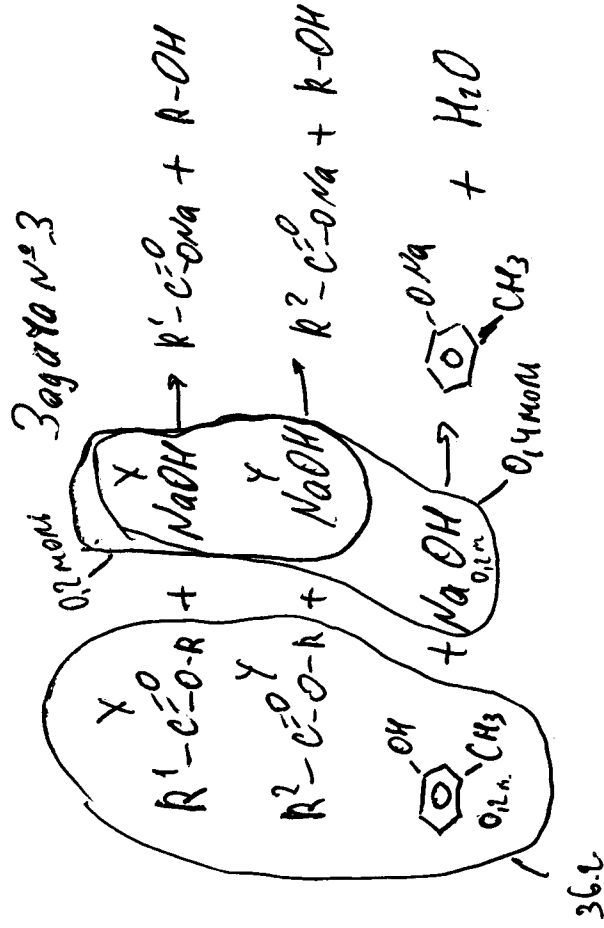 Задача №3
0,2 моль
X X
R¹-C(=O)-O-R + NaOH → R'-C(=O)-ONa + R-OH
Y Y
R²-C(=O)-O-R + NaOH → R²-C(=O)-ONa + R-OH
OH CH₃ 0,2м. + NaOH 0,2м → ONa CH₃ + H₂O
36.2
0,4 моль